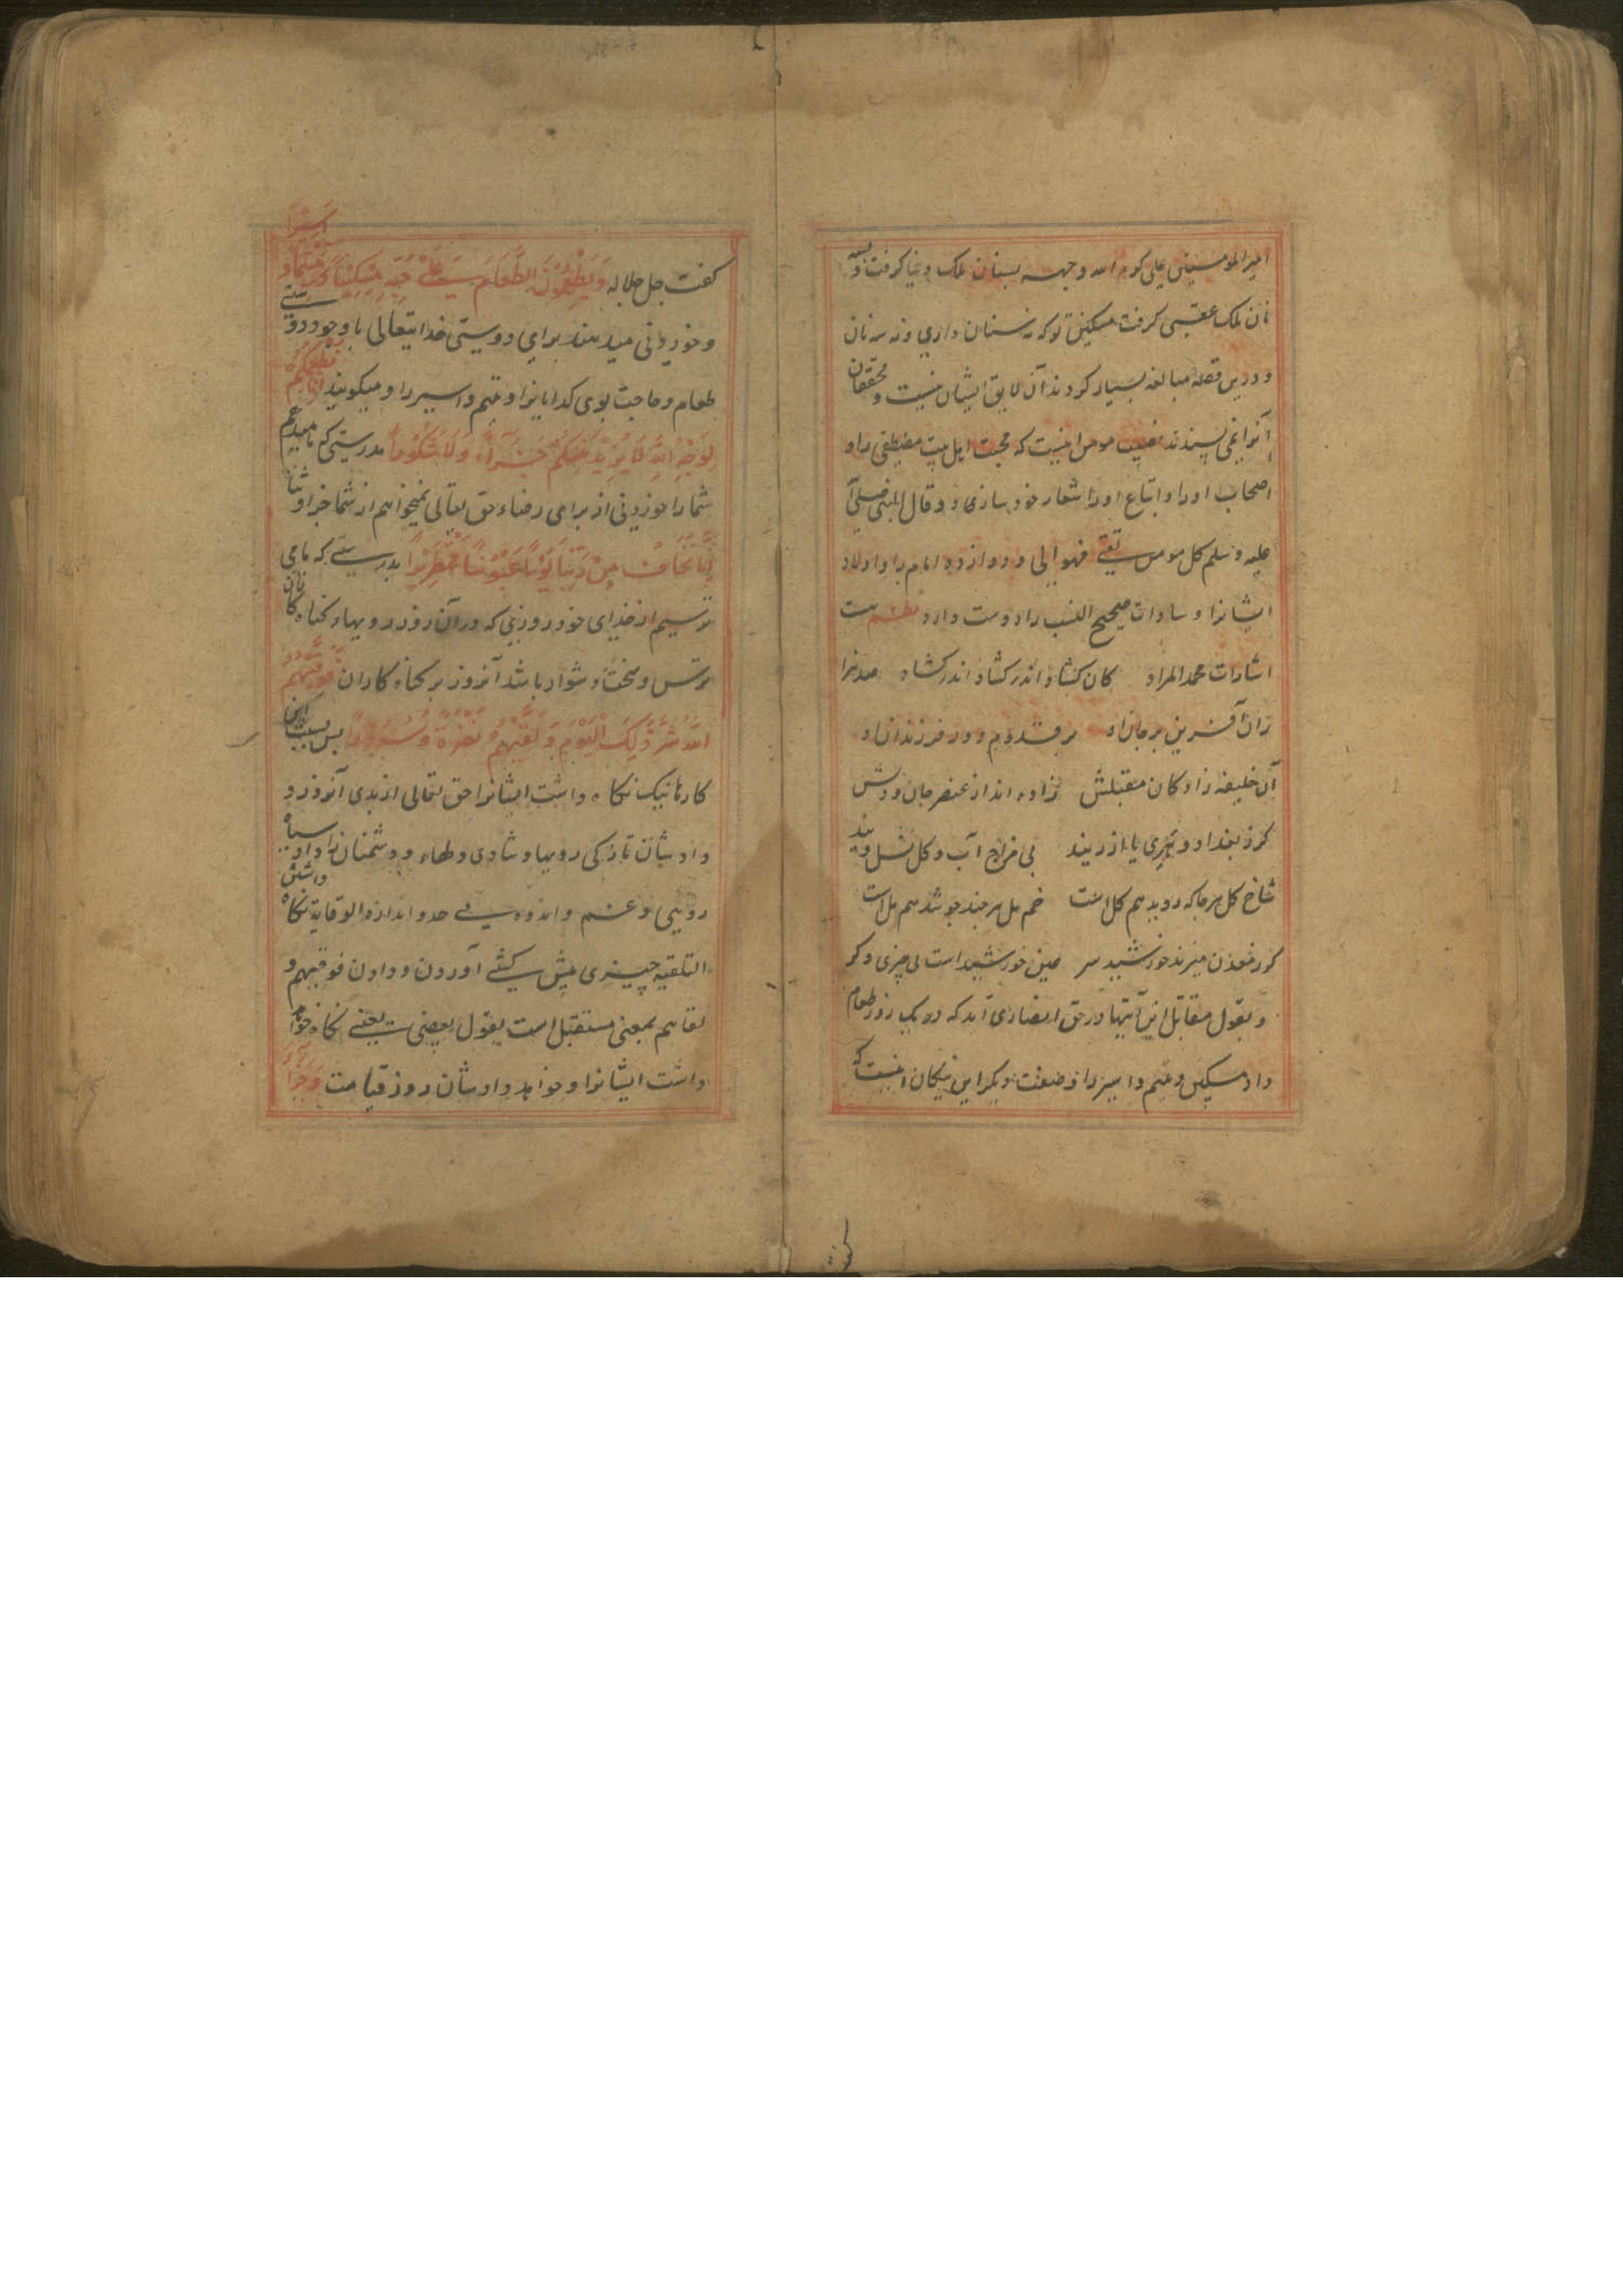 امیرالمومنین علی کرم الله وجهه بسنان ملک دنیا گرفت و بسه
نان ملک عقبی گرفت مسکین تو که نه سنان داری و نه سه نان
و درین قصه مبالغه بسیار کردند آن لایق ایشان نیست و محققان
آنرا نمی پسندند نصیب مومن اینست که محبت اهل بیت مصطفی را و
اصحاب او را و اتباع او را شعار خود سازی و قال النبی صلی الله
علیه و سلم کل مومن تقی فهو الی و دوازده امام را و اولاد
ایشانرا و سادات صحیح النسب را دوست دارد نظم هست
اشارات محمد المراد کان گشاد اندر گشاد اندر گشاد صد هزا
ران آفرین بر جان او بر قدوم و دور فرزندان او
آن خلیفه زادگان مقبلش زاده اند از عنصر جان و دلش
گر ز بغداد و هری یا از ریند بی مزاج آب و گل نسل ویند
شاخ گل هر جا که روید هم گل است خم مل هر چند جوشد هم مل است
گر ز مغرب میزند خورشید سر عین خورشید است نی چیزی دگر
و بقول مقاتل این آیتها در حق انصاری آمد که در یک روز طعام
داد مسکین و یتیم و اسیر را و صفت دیگر این نیکان اینست که
گفت جل جلاله وَیُطْعِمُوْنَ الطَّعَامَ عَلٰی حُبِّهٖ مِسْکِیْنًا وَّیَتِیْمًا وَّ اَسِیْرًا
و خوردنی میدهند برای دوستی خدایتعالی با وجود دوستی
طعام و حاجت بوی گدایانرا و یتیم و اسیر را و میگویند اِنَّمَا نُطْعِمُکُمْ
لِوَجْهِ اللّٰهِ لَا نُرِیْدُ مِنْکُمْ جَزَآءً وَّلَا شُکُوْرًا بدرستی که ما میدهیم
شما را خوردنی از برای رضاء حق تعالی نمیخواهم از شما جزا و ثنا
اِنَّا نَخَافُ مِنْ رَّبِّنَا یَوْمًا عَبُوْسًا قَمْطَرِیْرًا بدرستی که ما می
ترسیم از خدای خود روزی که در آن روز رویهاء گناه کاران
ترش و سخت دشوار باشد آنروز بر گناه کاران فَوَقٰهُمُ
اللّٰهُ شَرَّ ذٰلِکَ الْیَوْمِ وَلَقّٰیهُمْ نَضْرَةً وَّسُرُوْرًا پس بسبب این
کارها نیک نگاه داشت ایشانرا حق تعالی از بدی آنروز و
داد شان تازگی رویها و شادی دلهاء و دشمنان را داد سیاه
رویی و غم و اندوه بی حد و اندازه الوقایة نگاه داشتن
التلقیه چیزی پیش کسی آوردن و دادن فوقیهم و
لقاهم بمعنی مستقبل است بقول بعضی یعنی نگاه خواهد
داشت ایشانرا و خواهد داد شان روز قیامت وَجَزَا